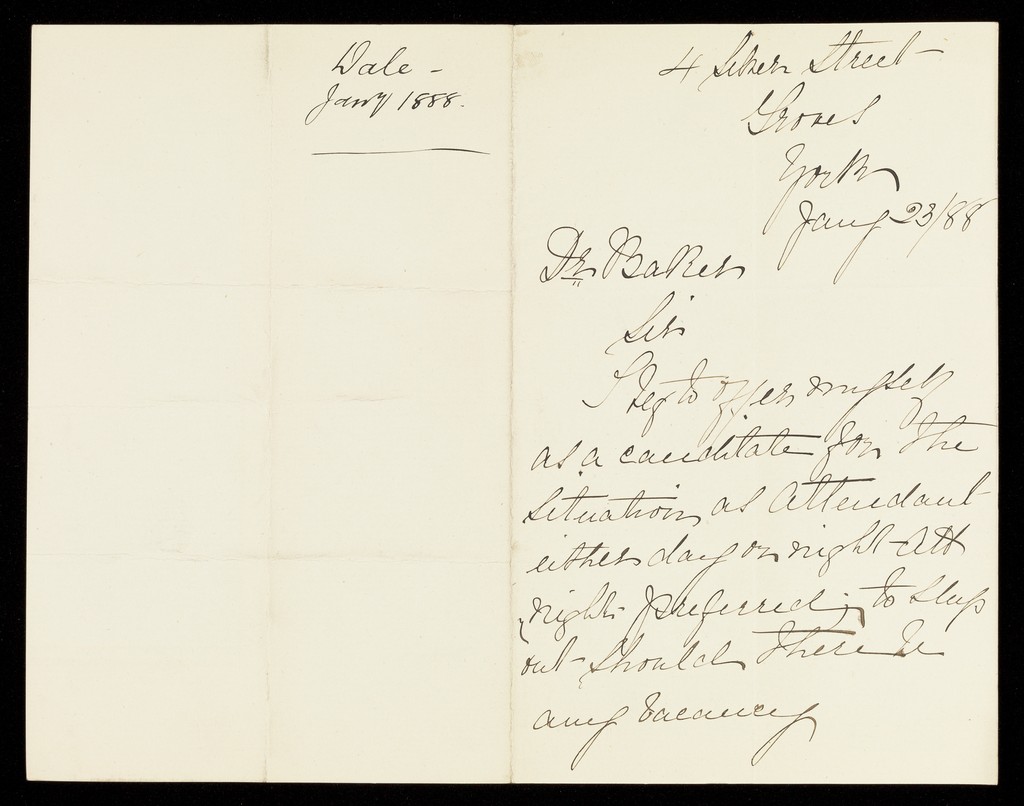 Dale -
Jany 1888.
4 Street
Groves
York
Jany 23/88
Dr Baker
Sir
I beg to offer myself
as a canditate for the
situation as Attendant
either day or night Att
night preferred, to sleep
out should there be
any vacancy